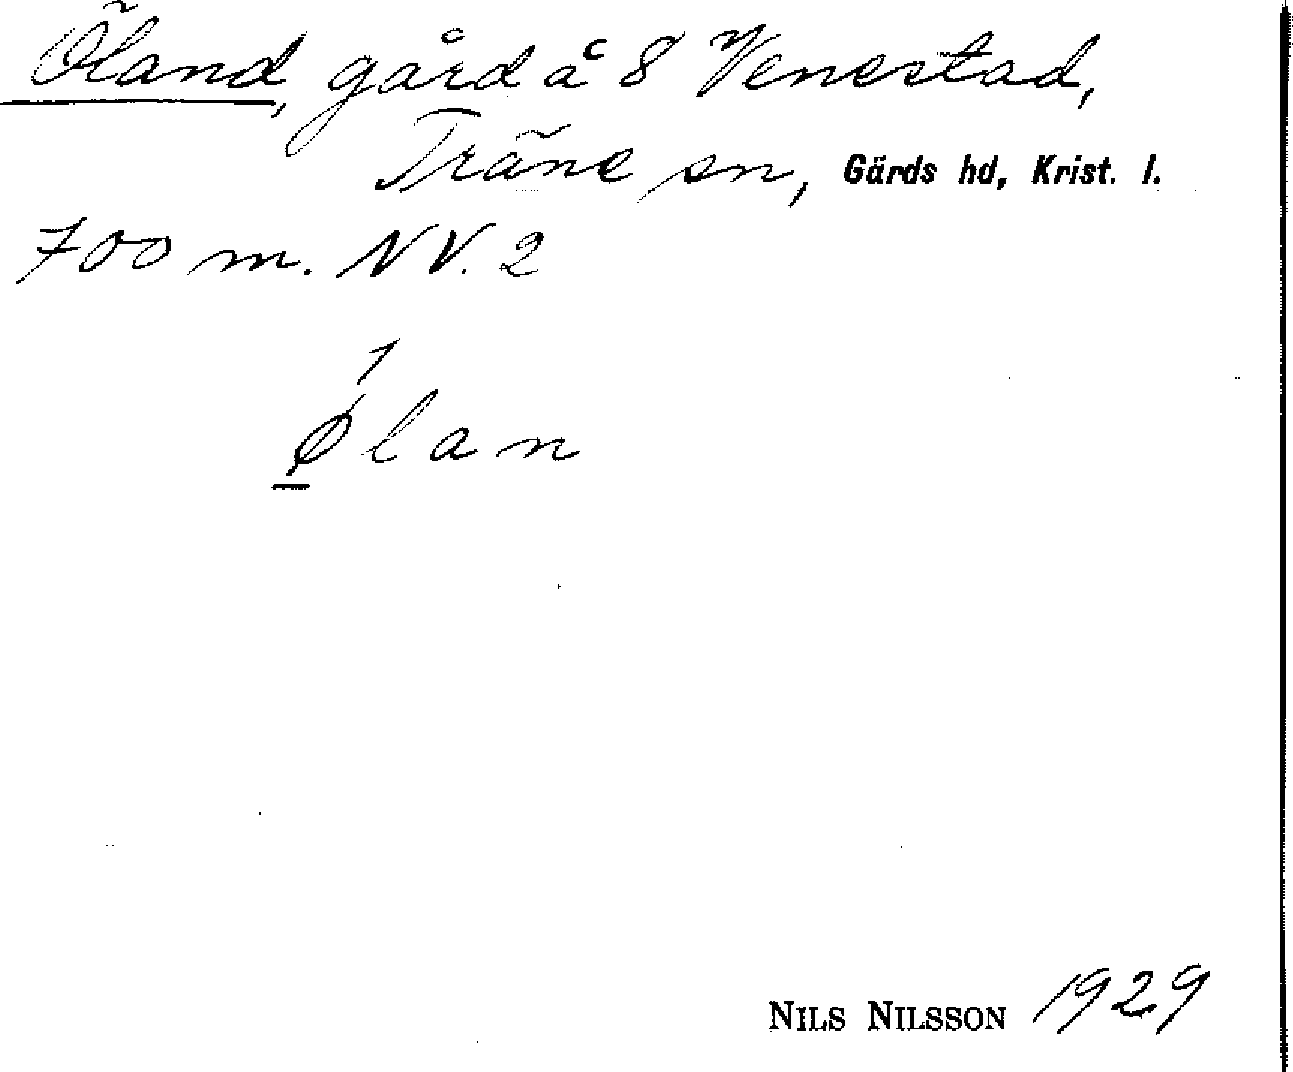 Öland, gård å 8 Venestad,
Träne sn, Gärds hd, Krist. l.
700 m. NV. 2
1
Ølan
NILS NILSSON 1929